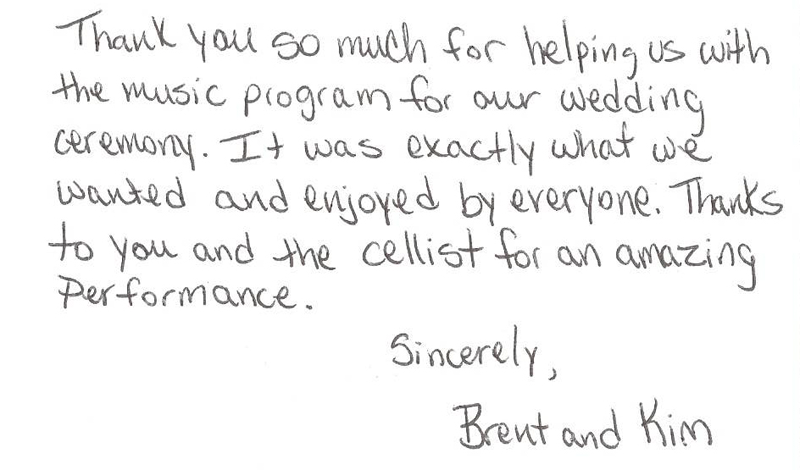 Thank you so much for helping us with
the music program for our wedding
ceremony. It was exactly what we
wanted and enjoyed by everyone. Thanks
to you and the cellist for an amazing
Performance.
Sincerely,
Brent and Kim